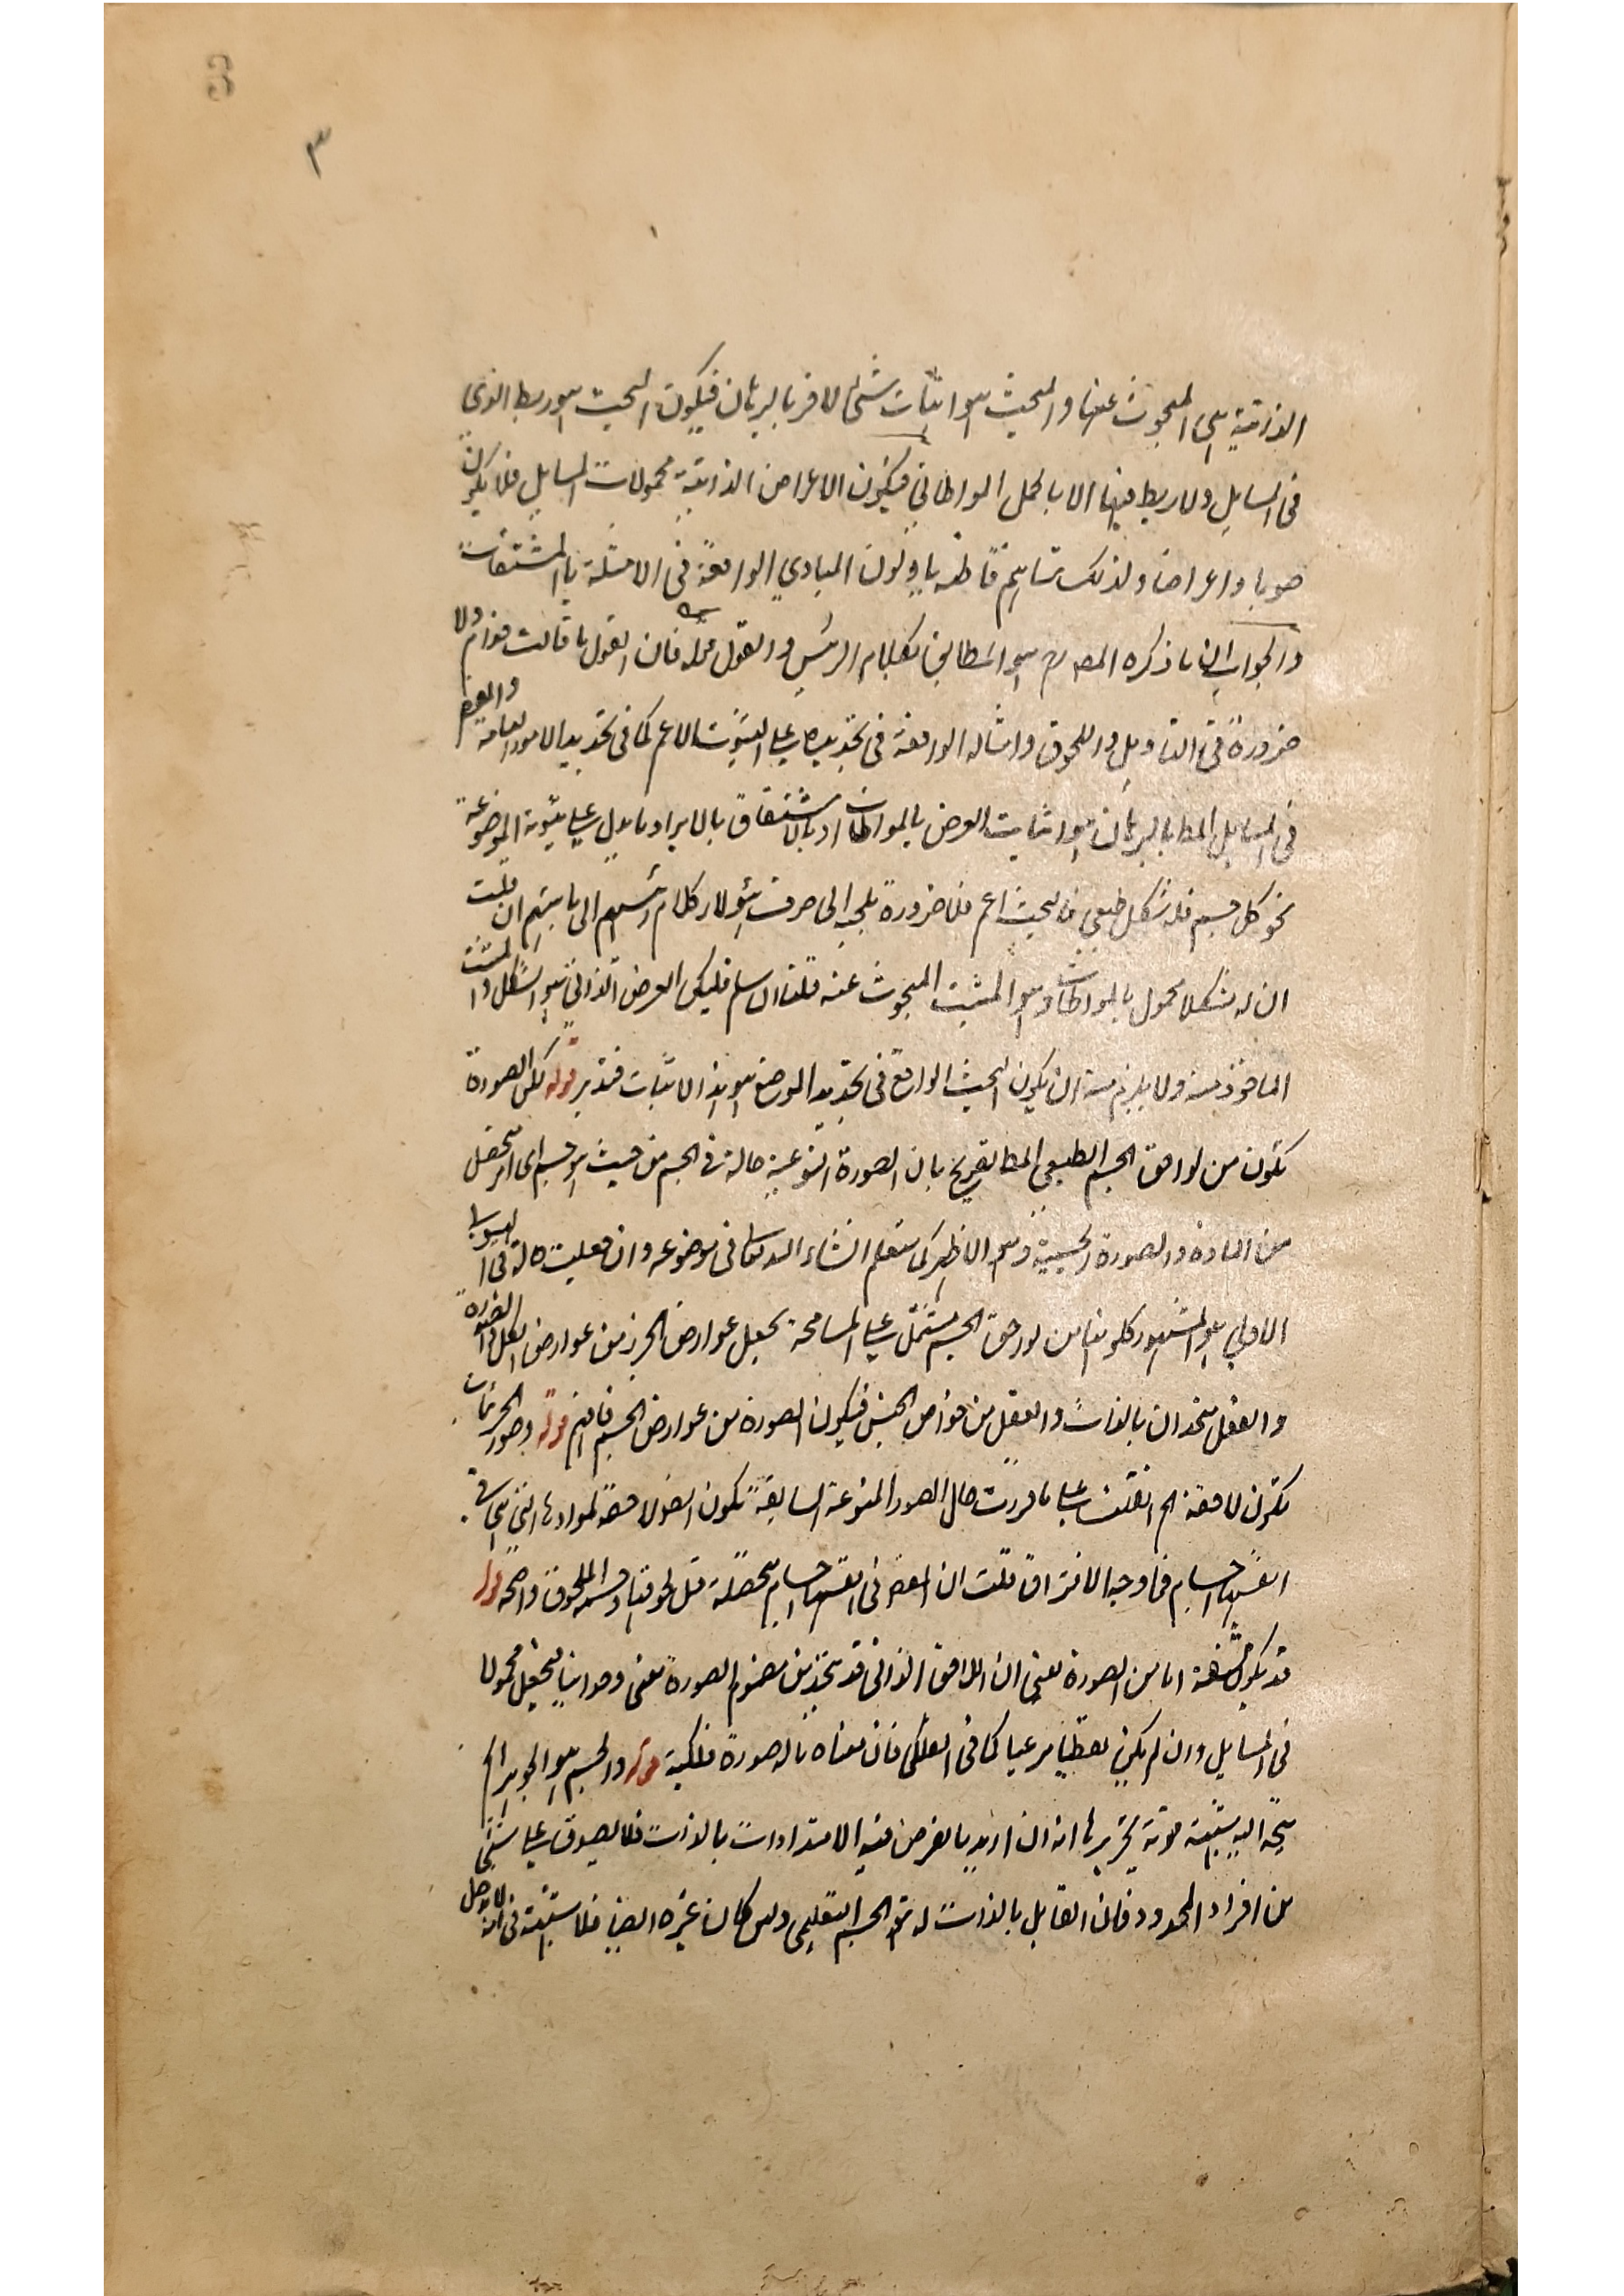 ٣
الذاتية هى المبحوث عنها والبحث هو اثبات شئ لاخر بالبرهان فيكون البحث هو ربط الذى
فى المسايل ولا ربط فيها الا بالحمل المواطاتى فيكون الاعراض الذاتية محمولات المسايل فلا يكون
صورا واعراضا ولذلك تراهم قاطبة ياولون المبادي الواقعة فى الامثلة بالمشتقات
والجواب ان ما ذكره المصرح هو المطابق لكلام الرئيس والقول فان القول ما قالت حذام ولا
ضرورة فى التاويل واللحوق وامثاله الواقعة فى تحديده على الثبوت الاعم كما فى تحديد الامور العامة والمعنى
فى المسايل المط بالبرهان هو اثبات العرض بالمواطات او بالاشتقاق بالايراد ما يدل على ثبوته للموضوع
نحو كل جسم فله شكل طبعى فالبحث اعم فلا ضرورة ملجية الى صرف هؤلاء كلام رئيسهم الى ما يتهم ان قلت
ان له شكلا محمول بالمواطات وهو المثبت المبحوث عنه قلت ان سلم فليكن العرض الذاتى هو الشكل والمثبت
الماخوذ منه ولا يلزم منه ان يكون البحث الواقع فى تحديد الموضوع هو هذا الاثبات فتدبر قوله لكن الصورة
تكون من لواحق الجسم الطبيعى المط تصريح بان الصورة النوعية حالة فى الجسم من حيث هو جسم اى امر متحصل
من المادة والصورة الجسمية وهو الاظهر كما ستعلم انشاء الله تعالى فى موضعه وان جعلت حالة فى الهيولى
الاولى هو المشهور فكونها من لواحق الجسم مشتمل على المسامحة بجعل عوارض الجزء من عوارض الكل او الصورة
والفصل متحدان بالذات والفصل من خواص الجنس فيكون الصورة من عوارض الجسم فافهم قوله وصور الجزئيات
تكون لاحقة الخ ان قلت على ما قررت حال الصور المنوعة السابقة تكون ايضا لاحقة لموادها التى هى فى
انفسها اجسام فما وجه الافتراق قلت ان العناصر فى انفسها اجسام متحصلة قبل لحوقها وجسم اللحوق واضحة قوله
قد يكون مشتقة اما من الصورة يعنى ان اللاحق الذاتى قد يتخذ من مفهوم الصورة معنى وحدانيا فيجعل محمولا
فى المسايل وان لم يكن لفظيا مرعيا كما فى الفلكى فان معناه ماله صورة فلكية قوله والجسم هو الجوهر الخ
يتجه اليه شبهة قوية تحريرها انه ان اريد بالفرض فيه الامتدادات بالذات فلا يصدق على شئ
من افراد المحدود فان القابل بالذات له هو الجسم التعليمى وان كان غيره ايضا فلا شبهة فى انه